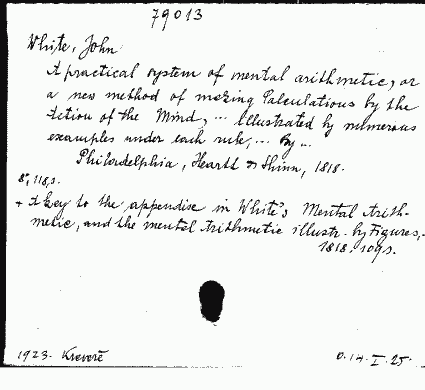 79013
White, John
A practical system of mental arithmetic, or
a new method of making Calculations by the
Action of the Mind, ... Illustrated by numerous
examples under each rule, ... By ...
Philadelphia, Hearth & Shinn, 1818.
8°, 118 s.
+ A key to the appendix in White's Mental Arith-
metic, and the mental Arithmetic illustr. by Figures,
1818. 109 s.
1923. Kreverē
0.14.I.25.